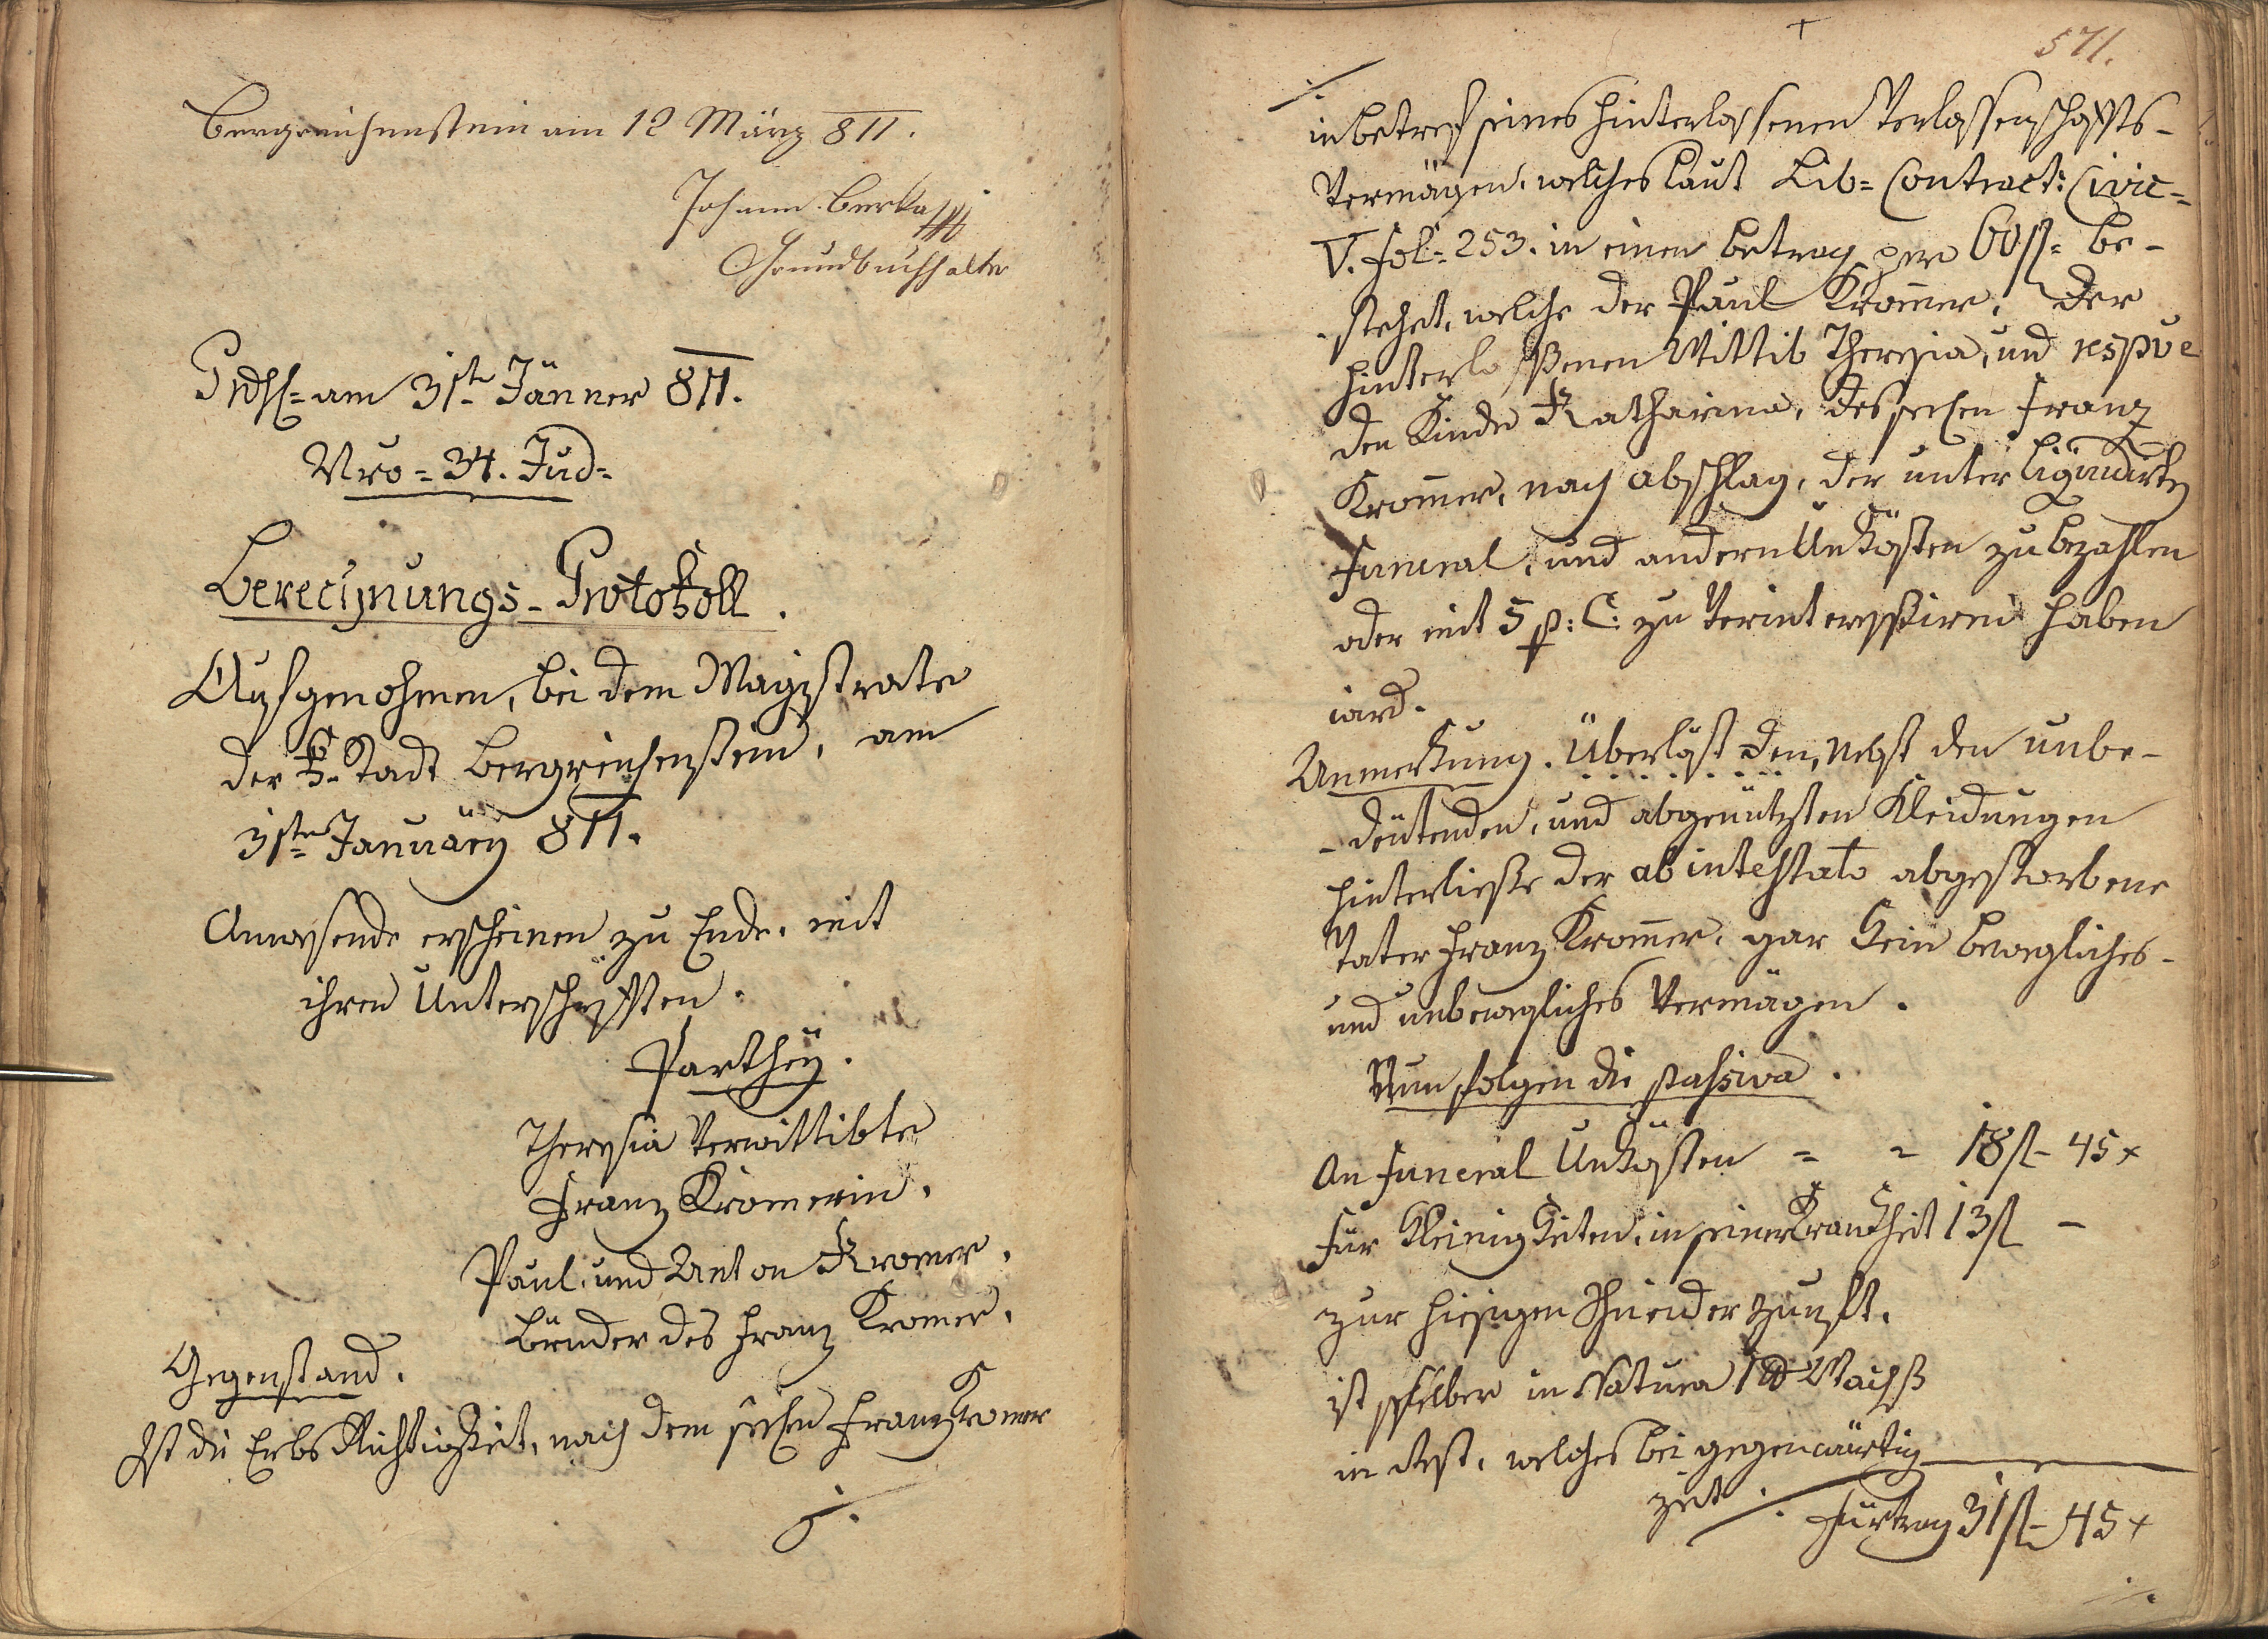 Bergreichenstein am 12 März 811.
Johann Berka
Grundbuchhalter
am 31t Jänner 811.
Nro = 34. Jud=
Berechnungs-Protokoll.
Aufgenohmen, bei dem Magistrate
der k. Stadt Bergreichenstein, am
31ten Januäry 811.
Anwesende erscheinen zu Ende, mit
ihren Unterschriften.
Parthey.
Theresia Verwittibte
Franz Kromerin.
Paul, und Anton Kromer,
Brüder des Franz Kromer.
Gegenstand.
Ist die Erbs Richtigkeit, nach dem seelen Franz Kromer
./.
571.
./.
in betref seines hinterlassenen Verlassenschafts-
Vermögen, welches laut Lib= Contract: Civic=
V. Fol= 253. in einen betrag per 60 fl= be-
stehet, welche der Paul Krom̄er, der
hinterlaßenen Wittib Theresia, und respve
den Kinde Katharina, des seelen Franz
Krom̄er, nach abschlag, der unter
Funeral, und andern Unkösten zu bezahlen
oder mit 5 p: C: zu Verinteressiren haben
wird.
Anmerkung. Überläst den, Nebst den unbe-
-deutenden, und abgenützten Kleidungen
hinterließe der ab intestato abgestorbene
Vater Franz Krom̄er, gar kein bewegliches-
und unbewegliches Vermögen.
Nun folgen die passiva.
An Funeral Unkösten = = 18 fl- 45 x
Für Kleinigkeiten, in seiner Krankheit 13 fl -
zur hiesigen Schneider zunft,
ist selber in Natura 1 ℔ Wachß
in Rest, welches bei gegenwärtig
zeit ./. Fürtrag 31 fl- 45 x
./.